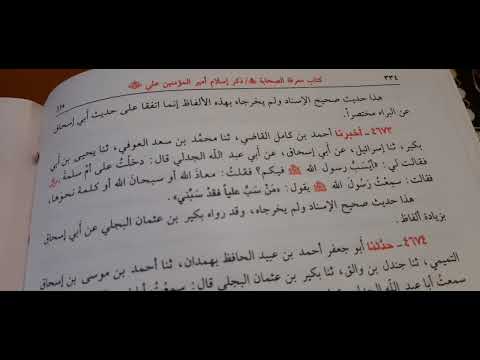 ٣٣٤ كتاب معرفة الصحابة / ذكر إسلام أمير المؤمنين علي
هذا حديث صحيح الإسناد ولم يخرجاه بهذه الألفاظ إنما اتفقا على حديث أبي إسحاق
عن البراء مختصراً.
٤٦٧٣ ـ أخبرنا أحمد بن كامل القاضي، ثنا محمد بن سعد العوفي، ثنا يحيى بن أبي
بكير، ثنا إسرائيل، عن أبي إسحاق، عن أبي عبد الله الجدلي قال: دخلت على أم سلمة
فقالت لي: «أيُسَبُّ رسول الله ﷺ فيكم؟» فقلت: معاذ الله أو سبحان الله أو كلمة نحوها،
فقالت: سمعتُ رَسُولَ الله ﷺ يقول: «مَنْ سَبَّ علياً فَقَدْ سَبَّني».
هذا حديث صحيح الإسناد ولم يخرجاه، وقد رواه بكير بن عثمان البجلي عن أبي إسحاق
بزيادة ألفاظ.
٤٦٧٤ ـ حدثنا أبو جعفر أحمد بن عبيد الحافظ بهمدان، ثنا أحمد بن موسى بن إسحاق
التميمي، ثنا جندل بن والق، ثنا بكير بن عثمان البجلي قال: سمعتُ
سمعتُ أبا عبد الله